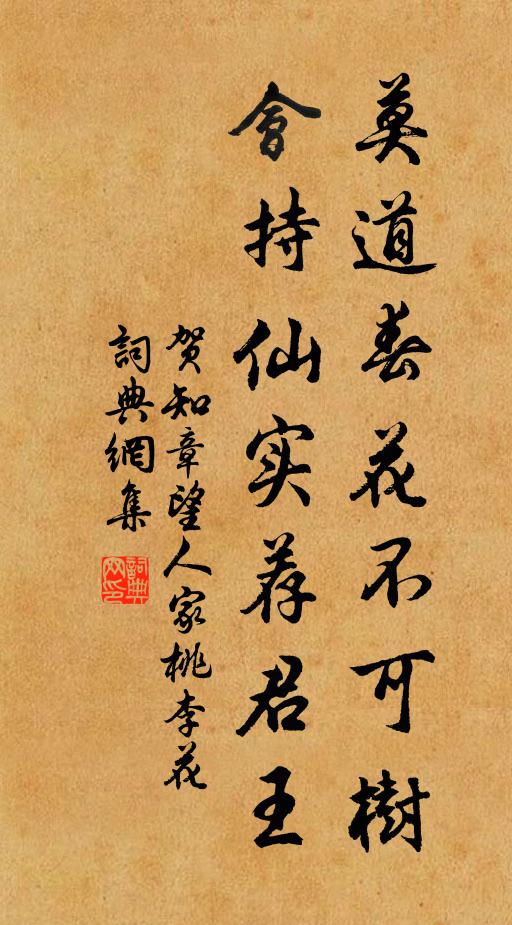 莫道春花不可樹
會持仙实荐君王
贺知章望人家桃李花
詞典網集
詞典网印